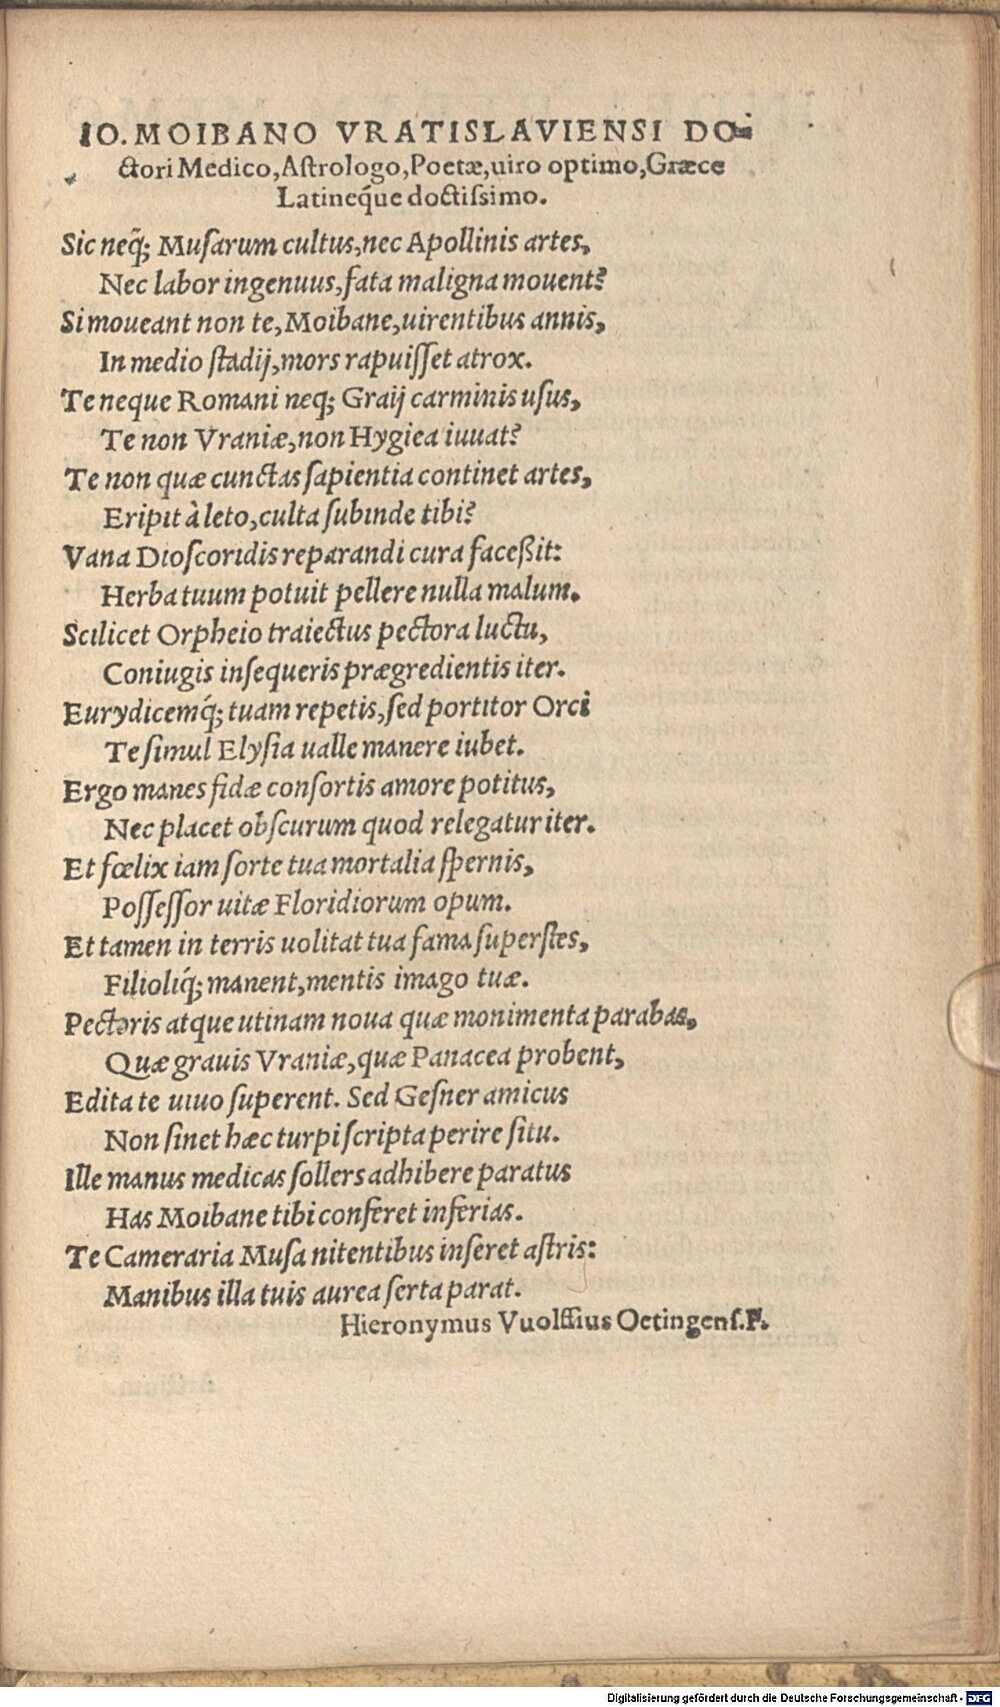 IO. MOIBANO VRATISLAVIENSI DO-
ctori Medico, Aſtrologo, Poetæ, uiro optimo, Græce
Latineq́ue doctiſsimo.
Sic neq̃; Muſarum cultus, nec Apollinis artes,
Nec labor ingenuus, fata maligna mouent?
Si moueant non te, Moibane, uirentibus annis,
In medio ſtadij, mors rapuiſſet atrox.
Te neque Romani neq; Graij carminis uſus,
Te non Vraniæ, non Hygiea iuuat?
Te non quæ cunctas ſapientia continet artes,
Eripit à leto, culta ſubinde tibi?
Vana Dioſcoridis reparandi cura faceßit:
Herba tuum potuit pellere nulla malum.
Scilicet Orpheio traiectus pectora luctu,
Coniugis inſequeris prægredientis iter.
Eurydicemq́; tuam repetis, ſed portitor Orci
Te ſimul Elyſia ualle manere iubet.
Ergo manes fidæ conſortis amore potitus,
Nec placet obſcurum quod relegatur iter.
Et fœlix iam ſorte tua mortalia ſpernis,
Poſſeſſor uitæ Floridiorum opum.
Et tamen in terris uolitat tua fama ſuperſtes,
Filioliq́; manent, mentis imago tuæ.
Pectoris atque utinam noua quæ monimenta parabas,
Quæ grauis Vraniæ, quæ Panacea probent,
Edita te uiuo ſuperent. Sed Geſner amicus
Non ſinet hæc turpi ſcripta perire ſitu.
Ille manus medicas ſollers adhibere paratus
Has Moibane tibi conferet inferias.
Te Cameraria Muſa nitentibus inſeret aſtris:
Manibus illa tuis aurea ſerta parat.
Hieronymus Vuolffius Oetingenſ. F.
Digitalisierung gefördert durch die Deutsche Forschungsgemeinschaft - DFG